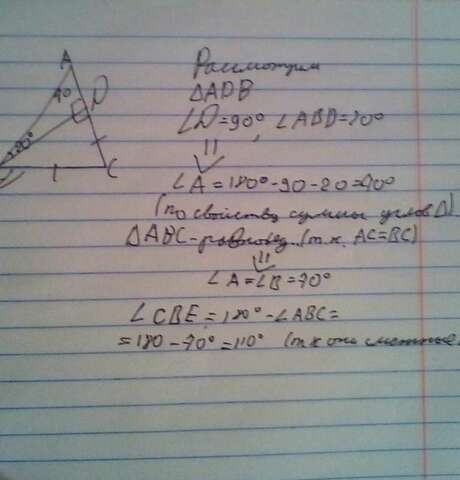 A
70
D
20°
C
Рассмотрим
ΔADB
∠D=90°, ∠ABD=20°
∠A=180°-90-20=70°
(по свойству суммы углов Δ)
ΔABC-равнобед. (т.к. AC=BC)
∠A=∠B=70°
∠CBE=180°-∠ABC=
=180-70°=110° (т.к они смежные